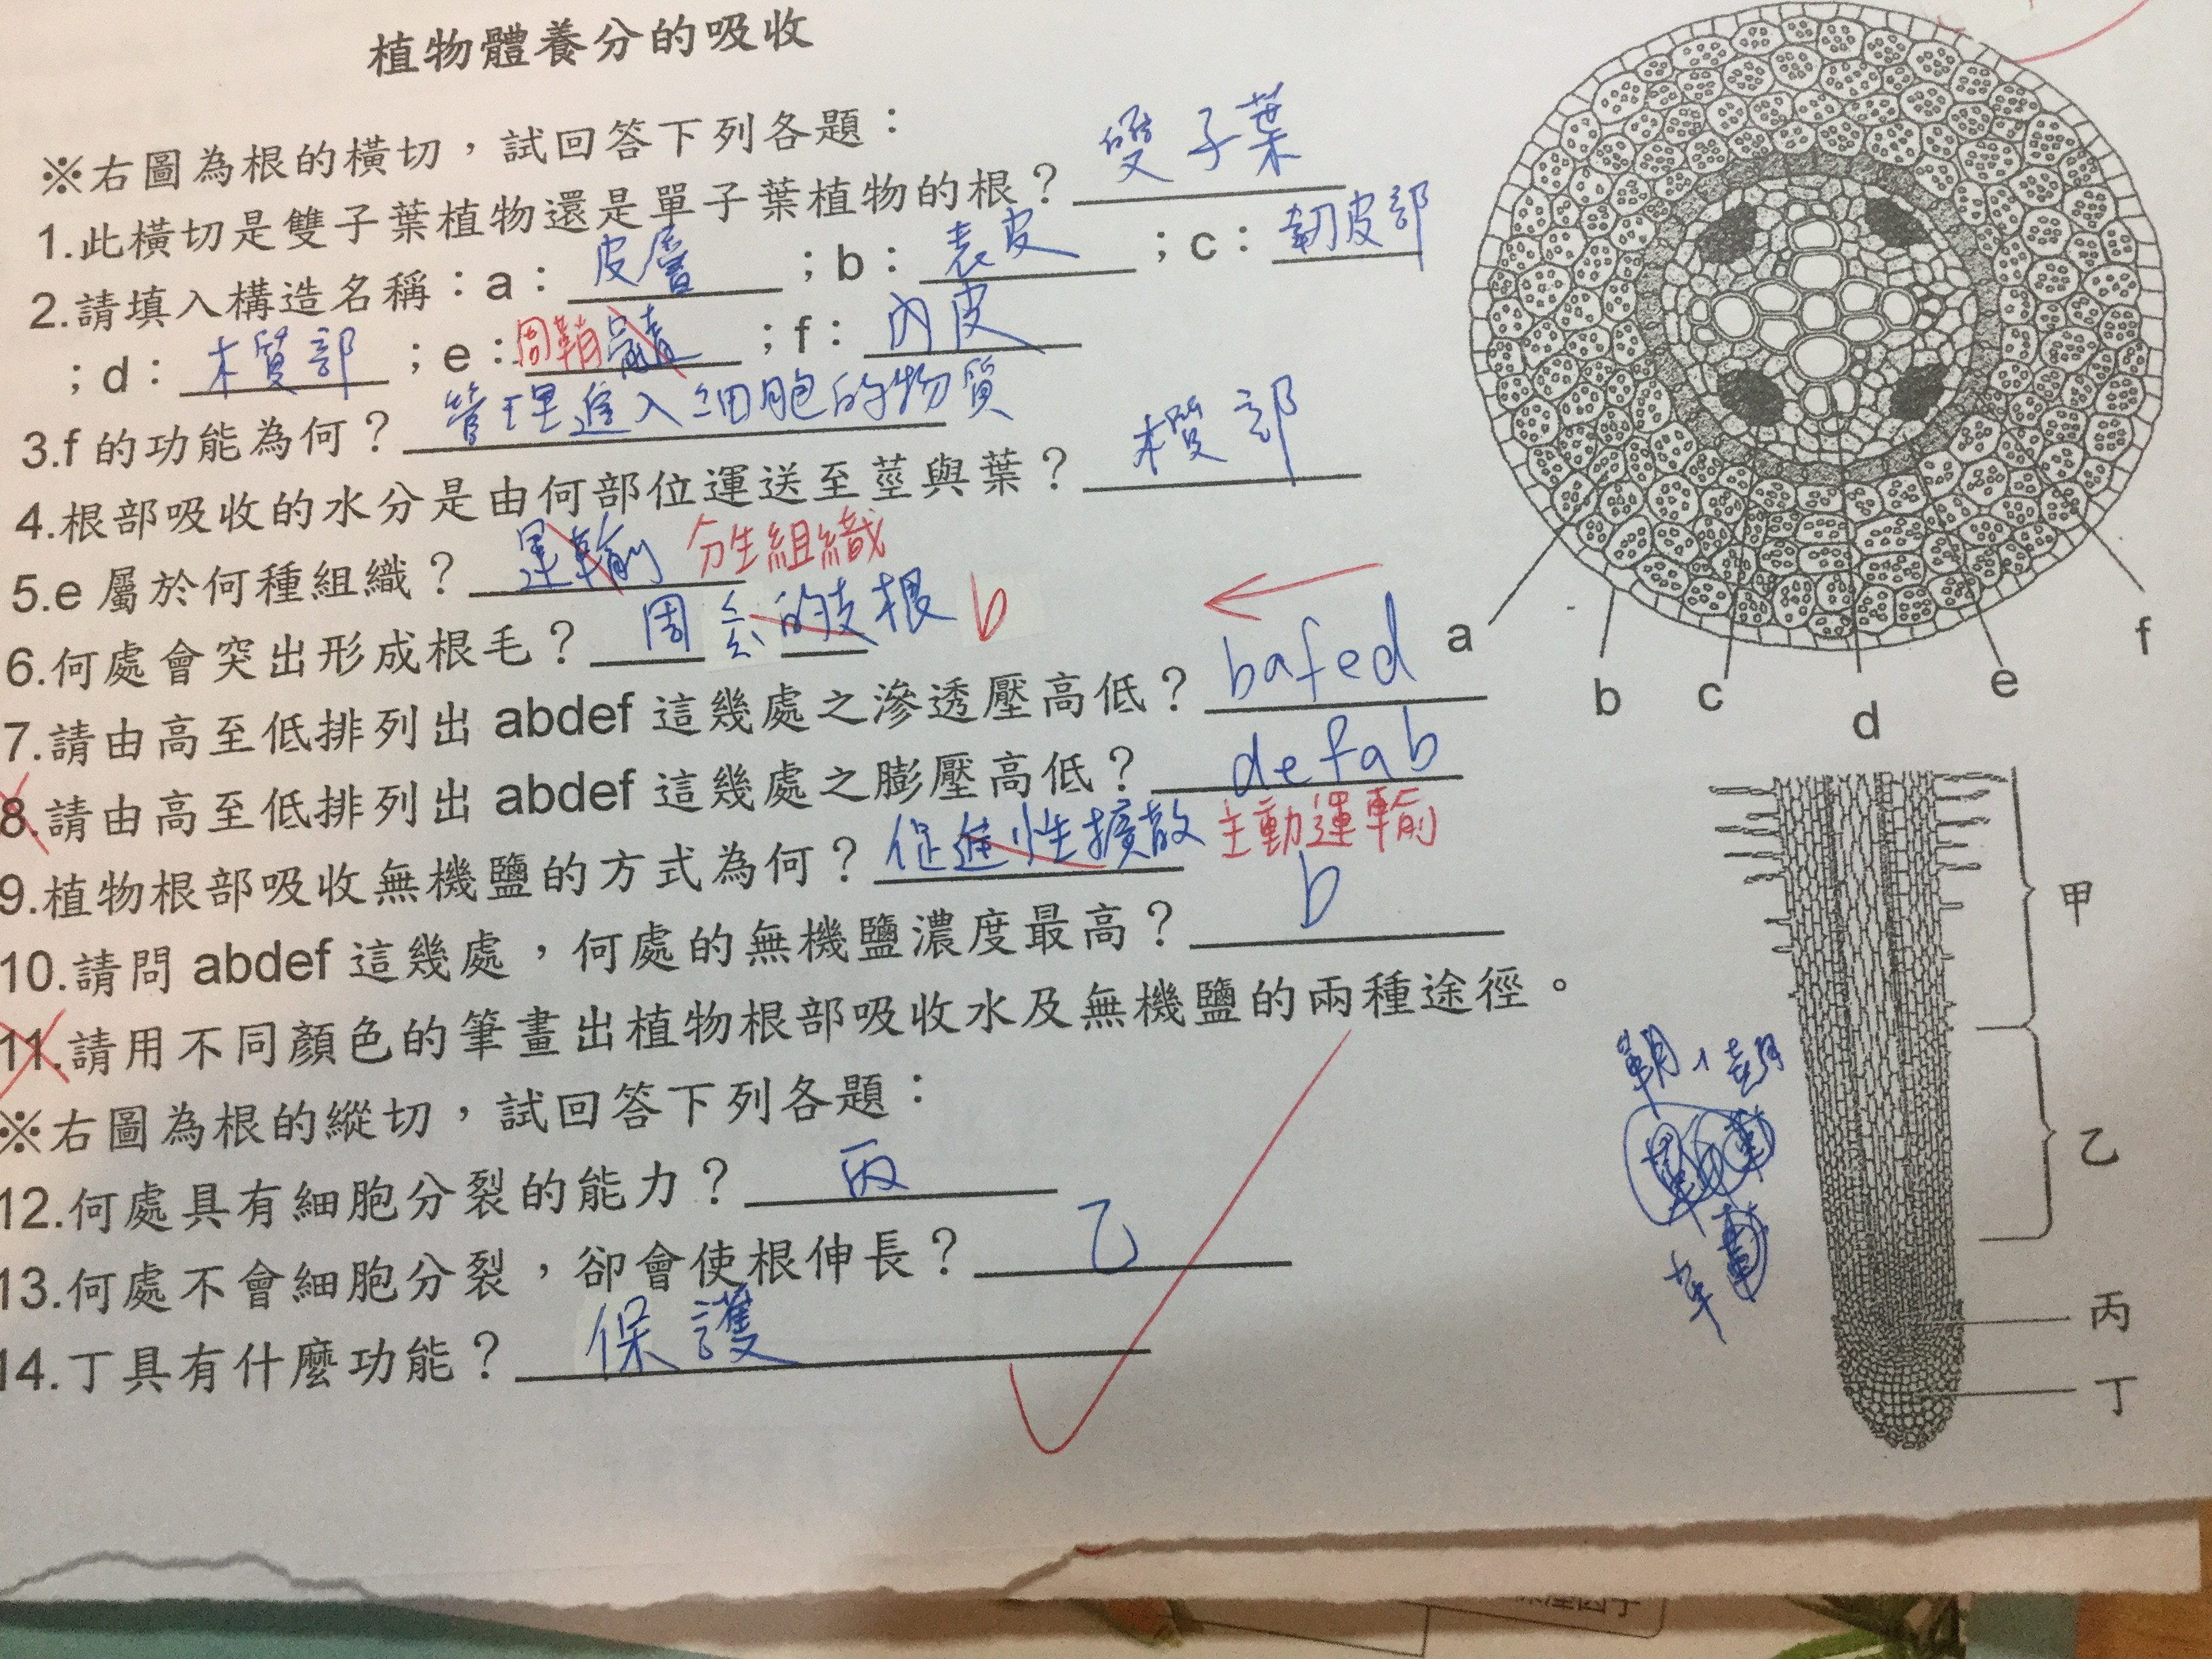 植物體養分的吸收
※右圖為根的橫切，試回答下列各題：
1.此橫切是雙子葉植物還是單子葉植物的根？雙子葉
2.請填入構造名稱：a：皮層；b：表皮；c：韌皮部
；d：木質部；e：周鞘髓；f：內皮
3.f 的功能為何？管理進入細胞的物質
4.根部吸收的水分是由何部位運送至莖與葉？木質部
5.e 屬於何種組織？運輸 分生組織
6.何處會突出形成根毛？周 的支根 b
7.請由高至低排列出 abdef 這幾處之滲透壓高低？bafed
8.請由高至低排列出 abdef 這幾處之膨壓高低？defab
9.植物根部吸收無機鹽的方式為何？促進性擴散 主動運輸
10.請問 abdef 這幾處，何處的無機鹽濃度最高？b
11.請用不同顏色的筆畫出植物根部吸收水及無機鹽的兩種途徑。
※右圖為根的縱切，試回答下列各題：
12.何處具有細胞分裂的能力？丙
13.何處不會細胞分裂，卻會使根伸長？乙
14.丁具有什麼功能？保護
a
b
c
d
e
f
甲
乙
丙
丁